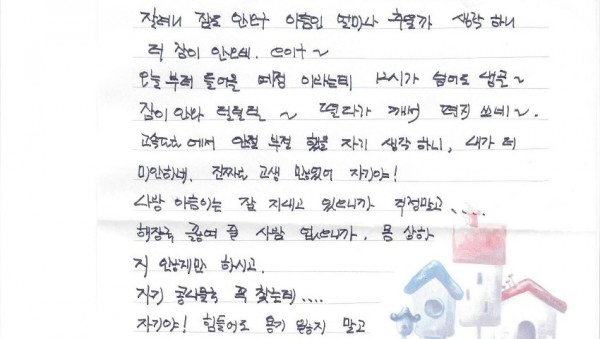 잘래니 잠도 안오구 아흠인 얼마나 추울까 생각 하니
더 잠이 안오네.
오늘 부터 들어올 예정 이라는데 시가 넘어도 생글~
잠이 안와 뒤척뒤척 ~ 편지 쓰네~.
에서 안절 부절 했을 자기 생각 하니, 내가 더
미안하네. 진짜로 고생 많았어 자기야!
사랑 아흠이는 잘 지내고 있으니까 걱정말고....
해장국 끓여 줄 사람 없으니까. 몸 상하
지 않게만 하시고.
자기 콩나물국 꼭 찾는데....
자기야! 힘들어도 용기 잃지 말고